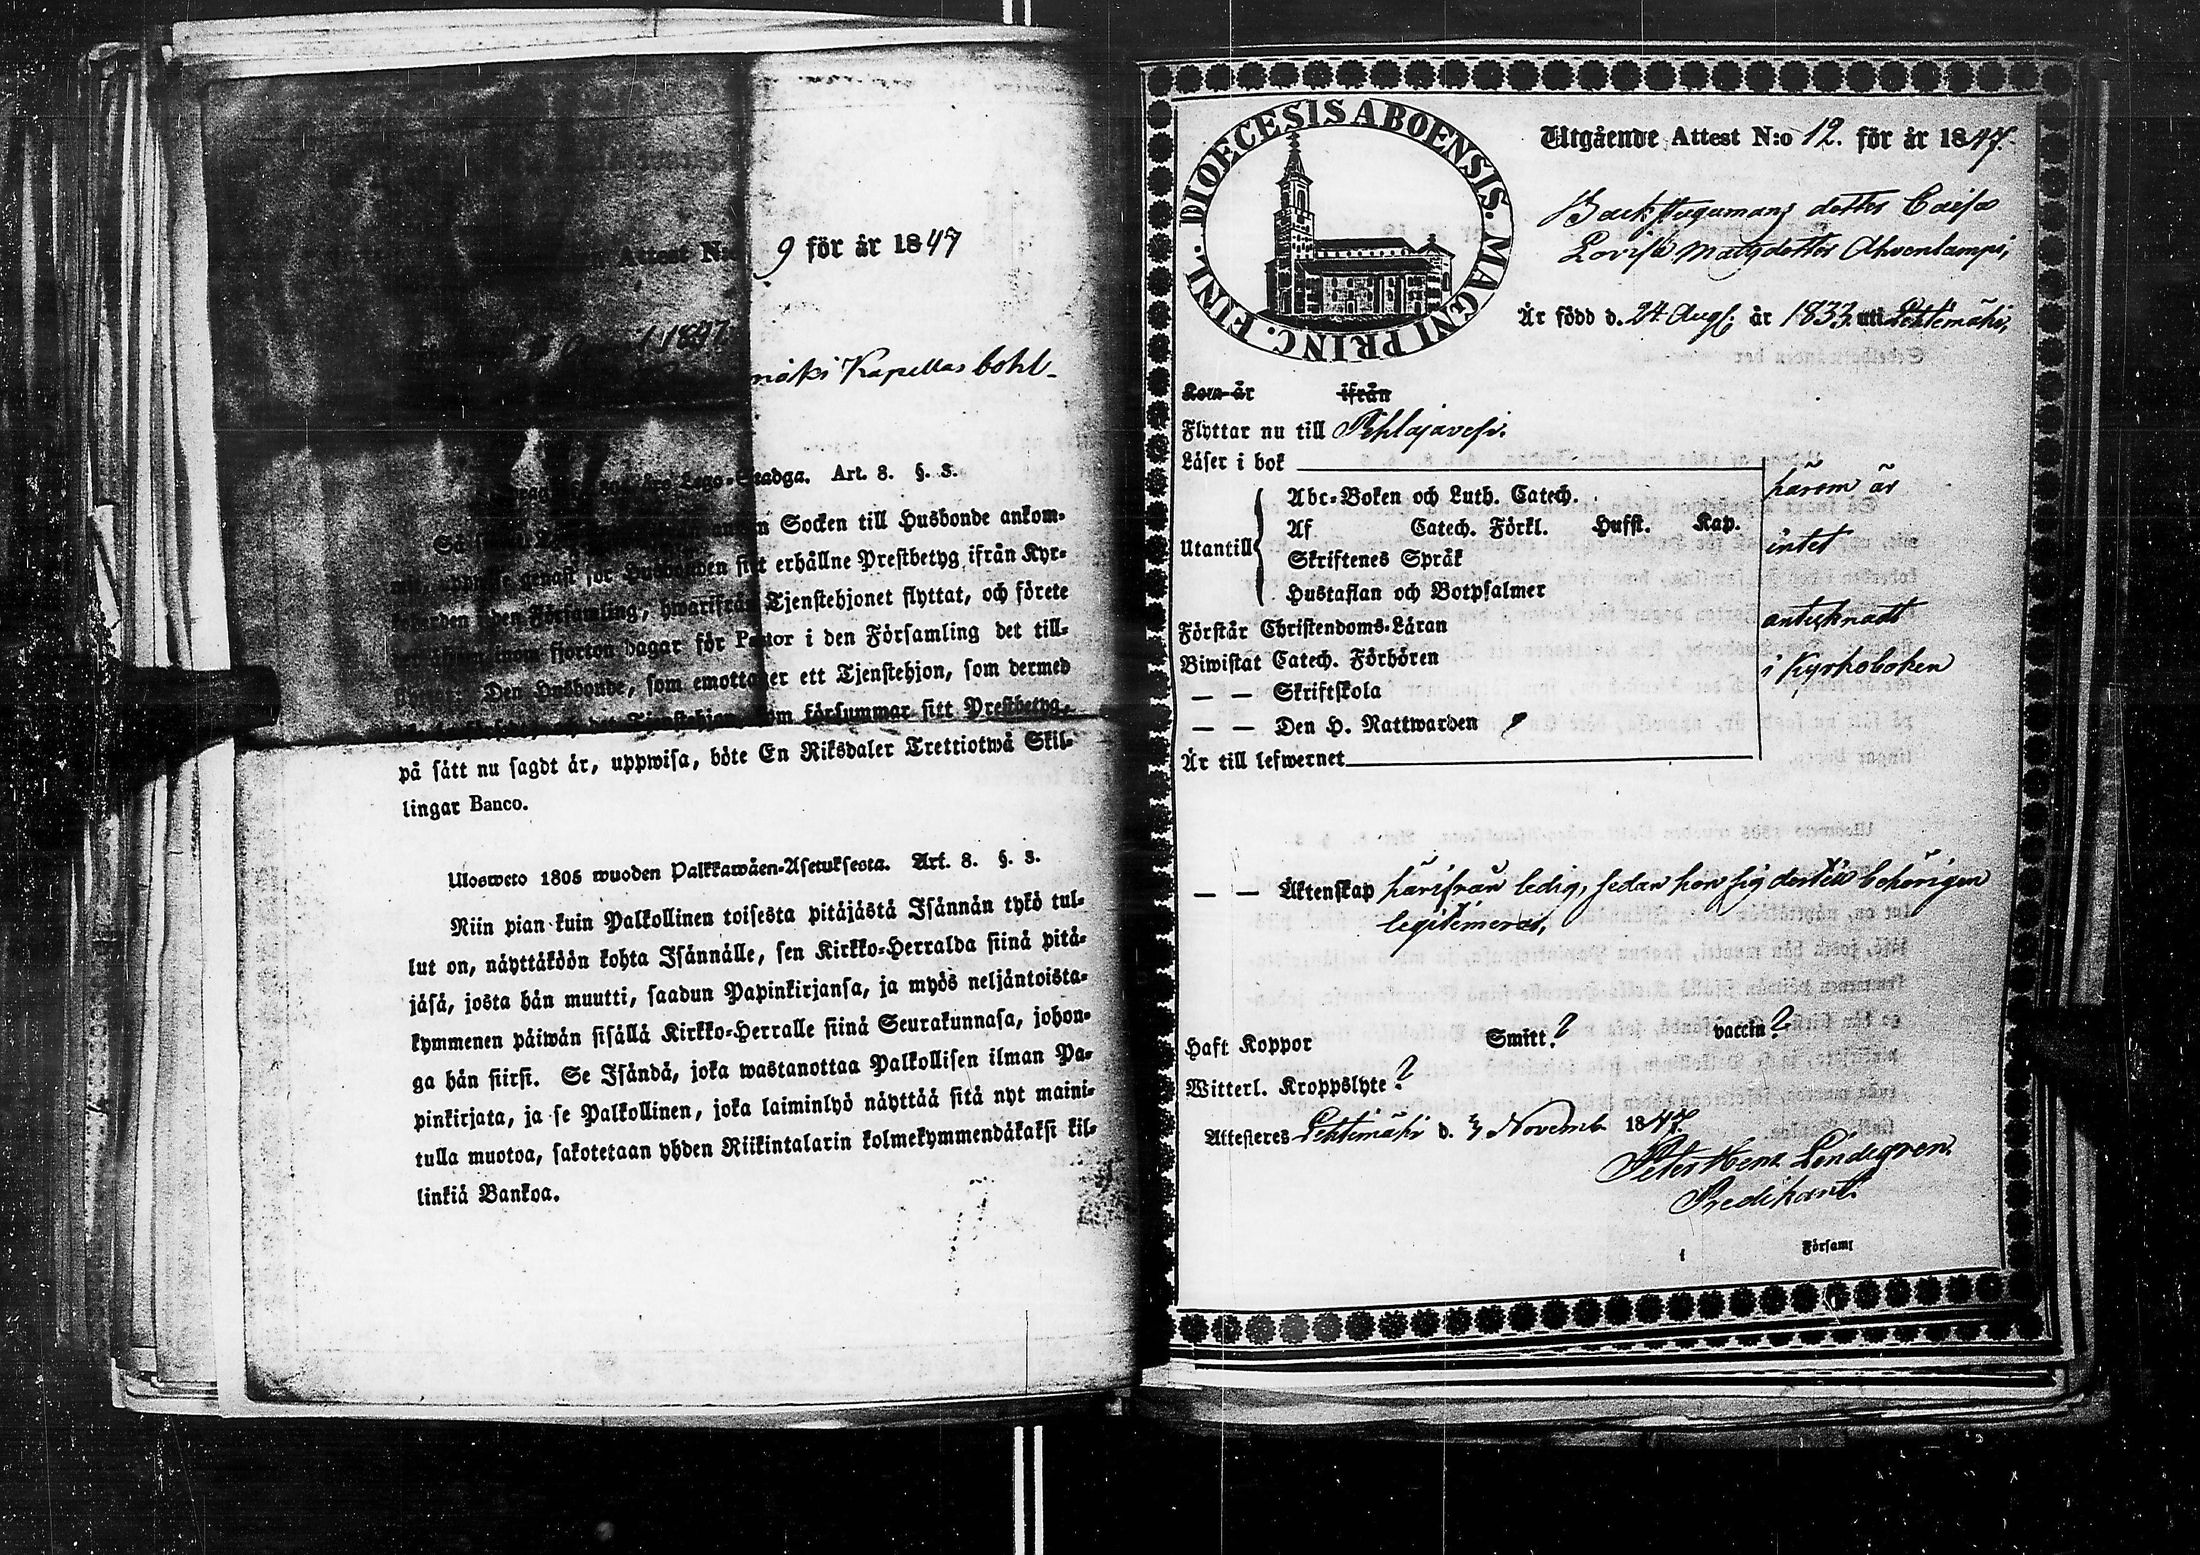 Attest N:o 9 för år 1847
1847
mäki Kapellas bohl-
Lego-Stadga. Art. 8. §. 3.
Socken till Husbonde ankom-
genast för Husbonden sitt erhållne Prestbetyg ifrån Kyr-
den Församling, hwarifrån Tjenstehjonet flyttat, och förete
inom fjorton dagar för Pastor i den Församling det till-
Den Husbonde, som emottager ett Tjenstehjon, som dermed
det Tjenstehjon, som försummar sitt Prestbetyg,
på sätt nu sagdt är, uppwisa, böte En Riksdaler Trettiotwå Skil-
lingar Banco.
Ulosweto 1805 wuoden Palkkawäen-Asetuksesta. Art. 8. §. 3.
Niin pian kuin Palkollinen toisesta pitäjästä Isännän tykö tul-
lut on, näyttäköön kohta Isännälle, sen Kirkko-Herralda siinä pitä-
jäsä, josta hän muutti, saadun Papinkirjansa, ja myös neljäntoista-
kymmenen päiwän sisällä Kirkko-Herralle siinä Seurakunnasa, johon-
ga hän siirsi. Se Isändä, joka wastanottaa Palkollisen ilman Pa-
pinkirjata, ja se Palkollinen, joka laiminlyö näyttää sitä nyt maini-
tulla muotoa, sakotetaan yhden Riikintalarin kolmekymmendäkaksi kil-
linkiä Bankoa.
DIOECESIS ABOENSIS. MAGNI PRINC. FINL.
Utgående Attest N:o 12. för år 1847.
Backstugumans dotter Caisa
Lovisa Matsdotter Ahvenlampi,
Är född d. 24 Aug. år 1833 uti Lehtimäki,
Kom år ifrån
Flyttar nu till Pihlajavesi.
Läser i bok
Utantill
Abc-Boken och Luth. Catech.
Af Catech. Förkl. Hufst. Kap.
Skriftenes Språk
Hustaflan och Botpsalmer
Förstår Christendoms-Läran
Biwistat Catech. Förhören
— — Skriftskola
— — Den H. Nattwarden
Är till lefwernet
härom är
intet
antecknadt
i Kyrkoboken
— — Äktenskap härifrån ledig, sedan hon sig dertill behörigen
legitimerat,
Haft Koppor Smitt.? vaccin?
Witterl. Kroppslyte?
Attesteres Lehtimäki d. 3 Novemb. 1847.
Peter Henr. Lindegren.
Predikant.
i Församl